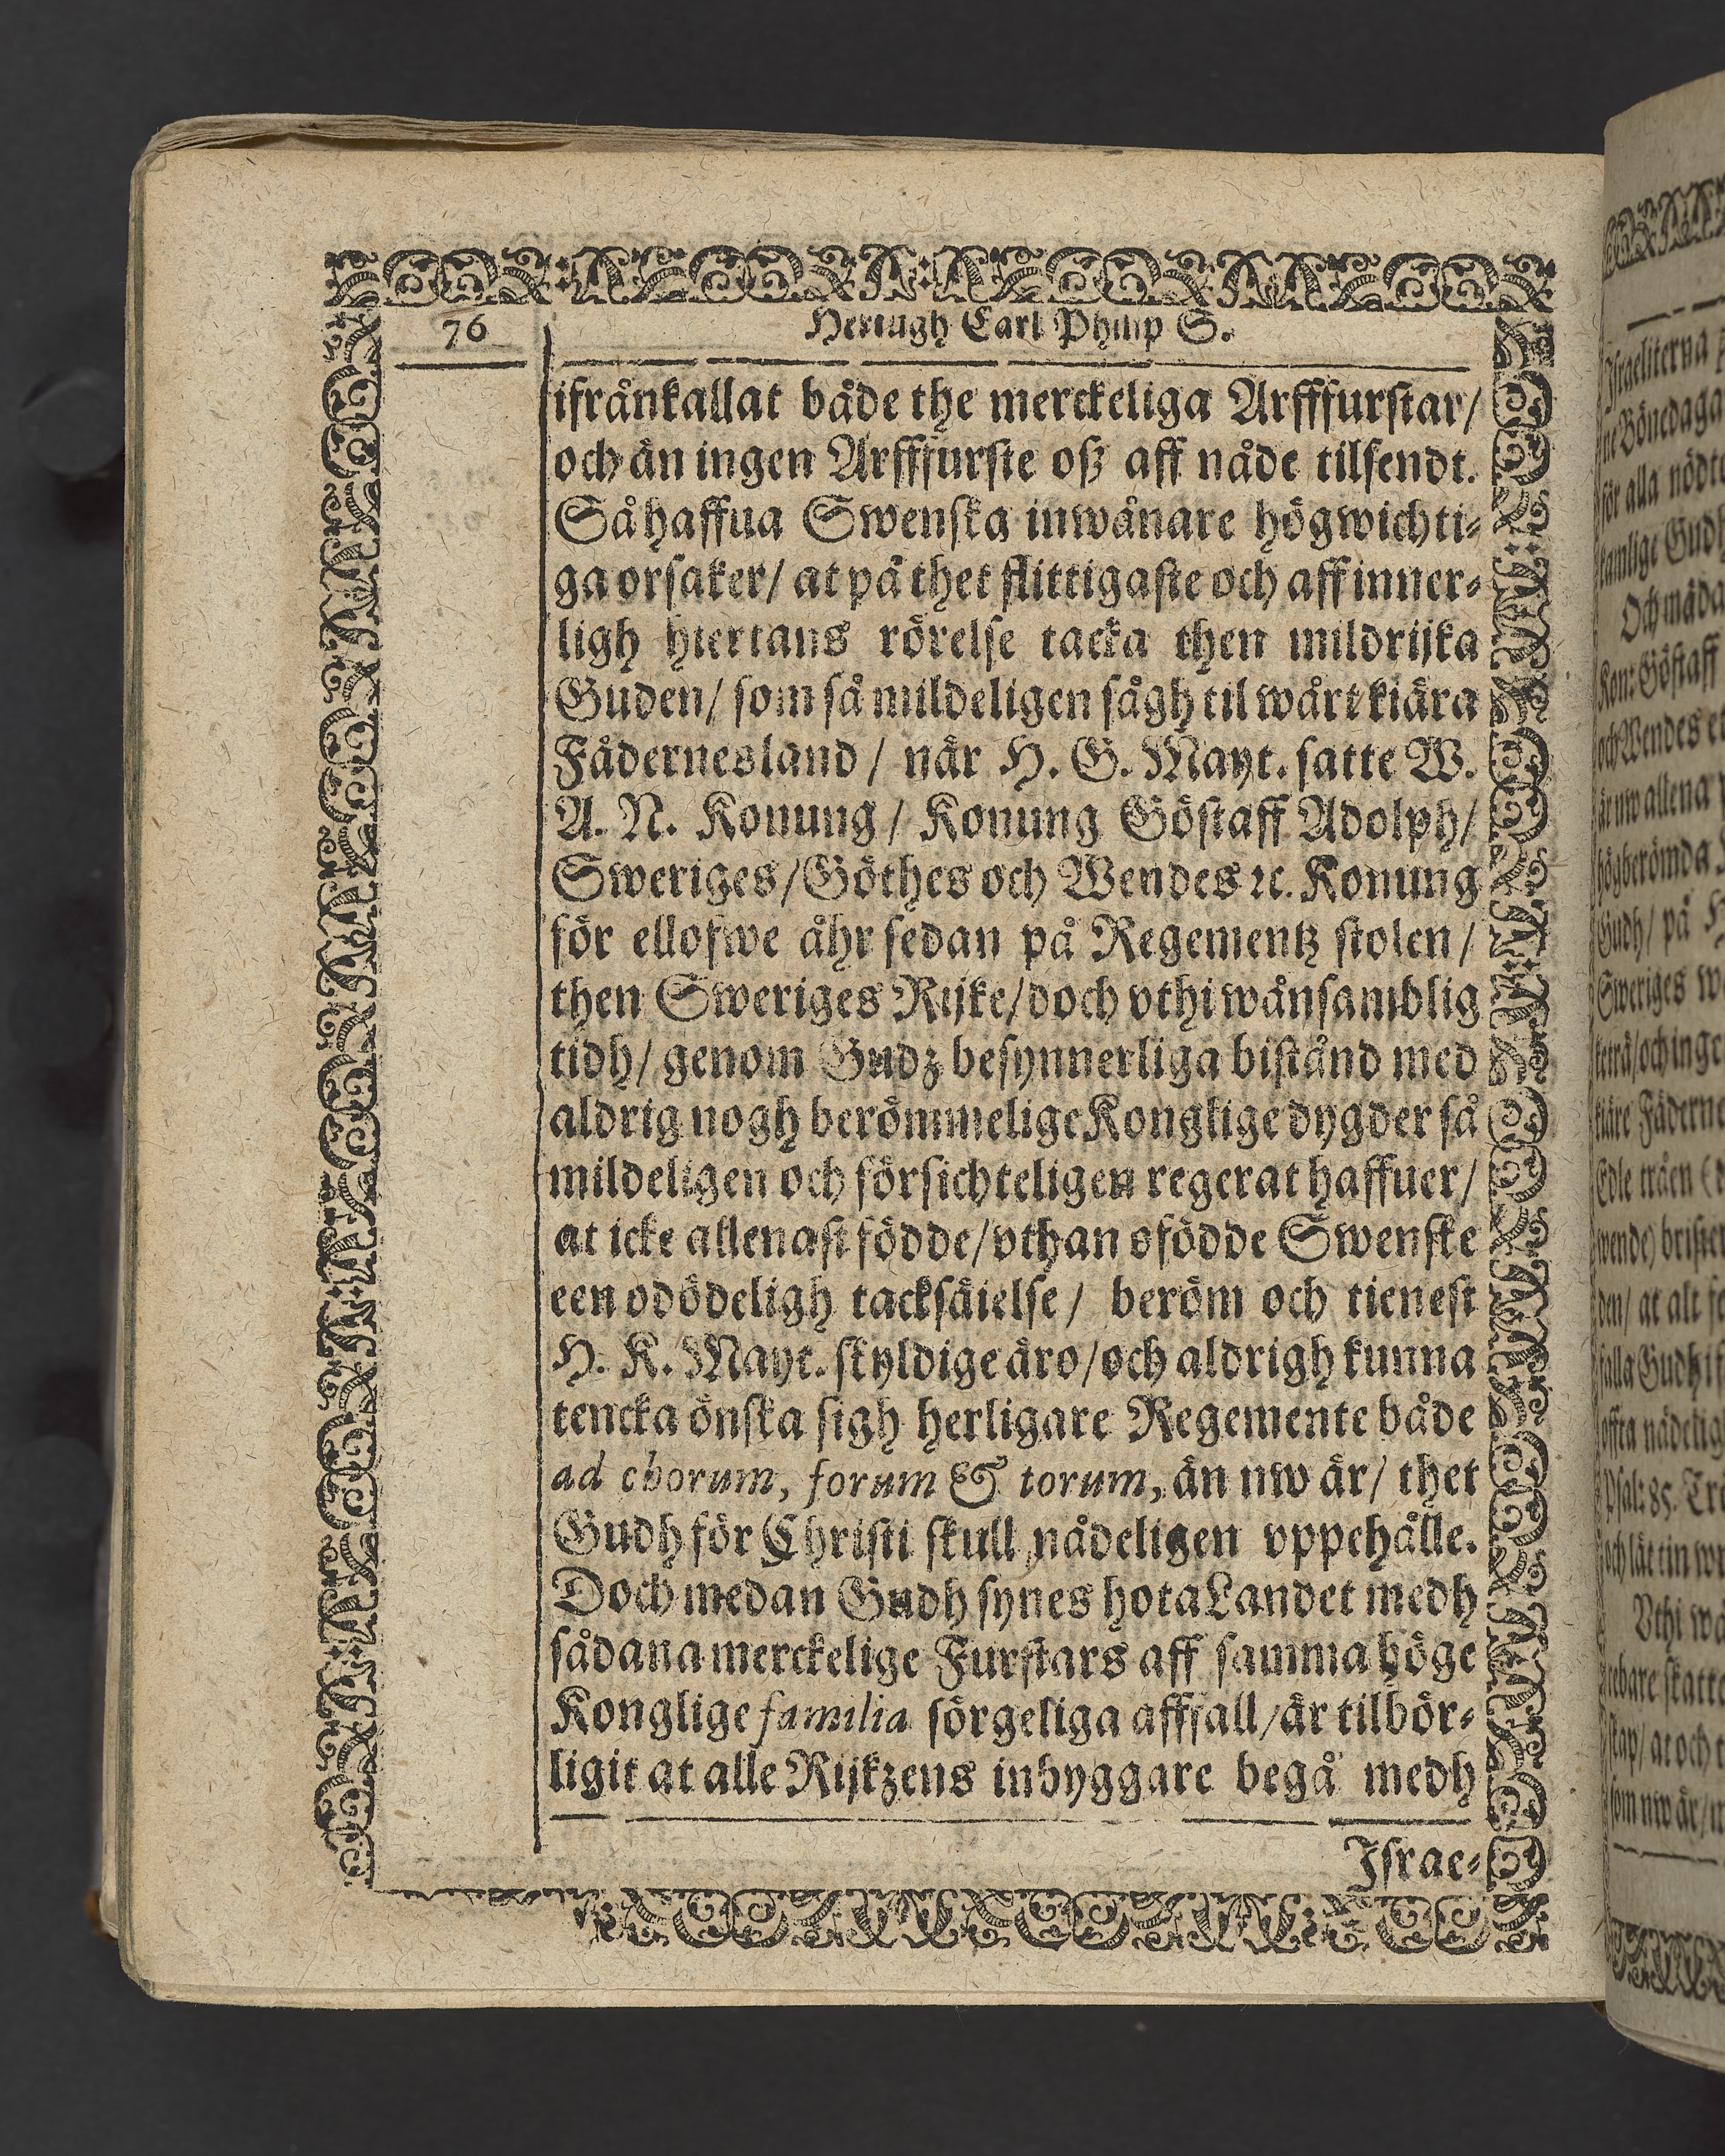 76
Hertugh Carl Philip S.
ifrånkallat både the merckeliga Arfffurstar/
och än ingen Arfffurste oß aff nåde tilsendt.
Så haffua Swenska inwånare högwichti⸗
ga orsaker/ at på thet flittigaste och aff inner⸗
ligh hiertans rörelse tacka then mildrijka
Guden/ som så mildeligen sågh til wårt kiära
Fådernesland/ när H. G. Mayt. satte W.
A. N. Konung/ Konung Göstaff Adolph/
Sweriges/Göthes och Wendes ꝛc. Konung
för ellofwe åhr sedan på Regementz stolen/
then Sweriges Rijke/doch vthi wånsamblig
tidh/ genom Gudz besynnerliga bistånd med
aldrig nogh berömmelige Konglige dygder så
mildeligen och försichteligen regerat haffuer/
at icke allenast födde/vthan ofödde Swenske
een odödeligh tacksäielse/ beröm och tienest
H. K. Mayt. skyldige äro/och aldrigh kunna
tencka önska sigh herligare Regemente både
ad chorum, forum & torum, än nw är/ thet
Gudh för Christi skull nådeligen vppehålle.
Doch medan Gudh synes hota Landet medh
sådana merckelige Furstars aff samma höge
Konglige familia sörgeliga afffall/är tilbör⸗
ligit at alle Rijkzens inbyggare begå medh
Israe⸗
Israeliterna
ne Bönedaga
för alla
Och
Kon: Göstaff
och Wendes
är nw allena
högberömda
Gudh/ på
Sweriges
kiäre Fäderne
wende)
den/ at alt
falla Gudh
Psal: 85.
och lät tin
Vthi
som nw är/